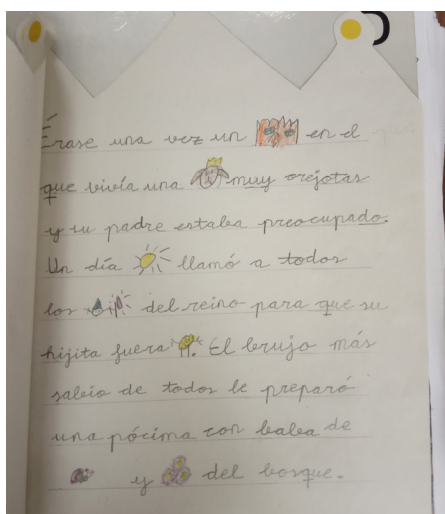 Érase una vez un en el
que vivía una muy orejotas
y su padre estaba preocupado.
Un día llamó a todos
los del reino para que su
hijita fuera . El brujo más
sabio de todos le preparó
una pócima con baba de
y del bosque.